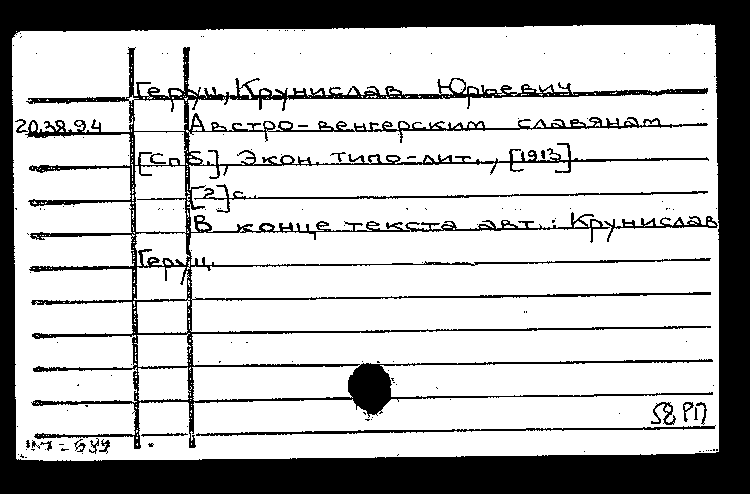 Геруц, Крунислав Юрьевич
20.38.9.4 Австро-венгерским славянам.
[Спб.], Экон. типо-лит., [1913].
[2] с.
В конце текста авт.: Крунислав
Геруц.
58 РП